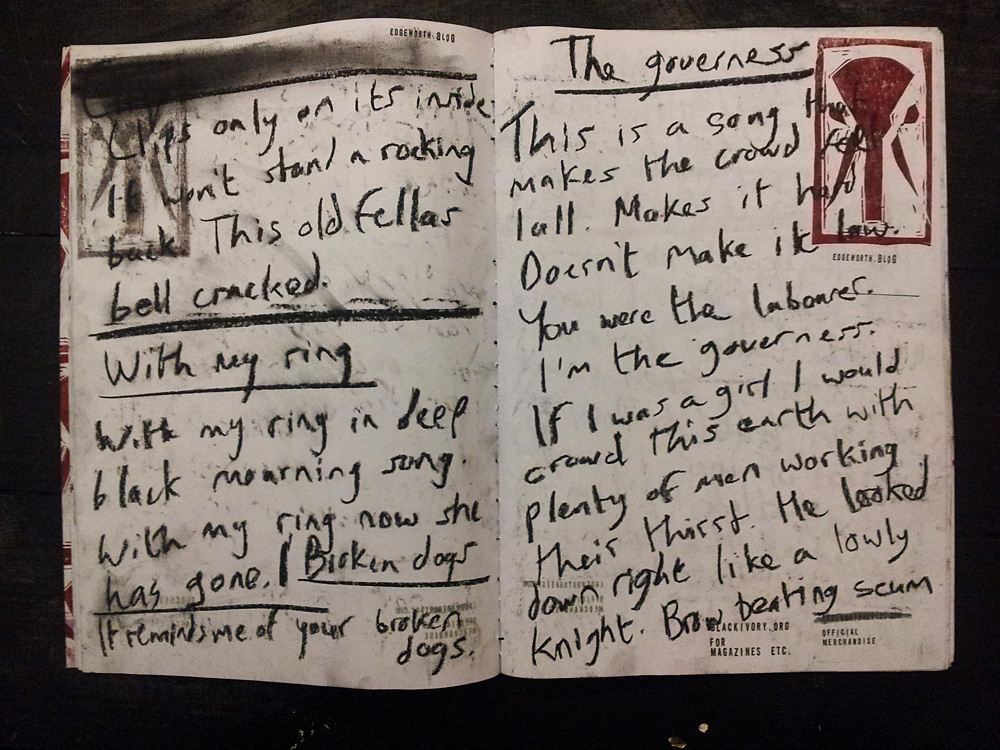 EDGEWORTH.BLOG
Clips only on its inside
It won't stand a rocking
back. This old fellas
bell cracked.
With my ring
With my ring in deep
black mourning song.
With my ring now she
has gone. | Broken dogs
It reminds me of your broken
dogs.
The governess
This is a song that
makes the crowd feel
lall. Makes it hold
Doesn't make it law.
EDGEWORTH.BLOG
You were the labourer.
I'm the governess.
If I was a girl I would
crowd this earth with
plenty of men working
their thirst. He looked
down right like a lowly
knight. Brow beating scum
BLACKIVORY.ORG
FOR
MAGAZINES ETC.
OFFICIAL
MERCHANDISE